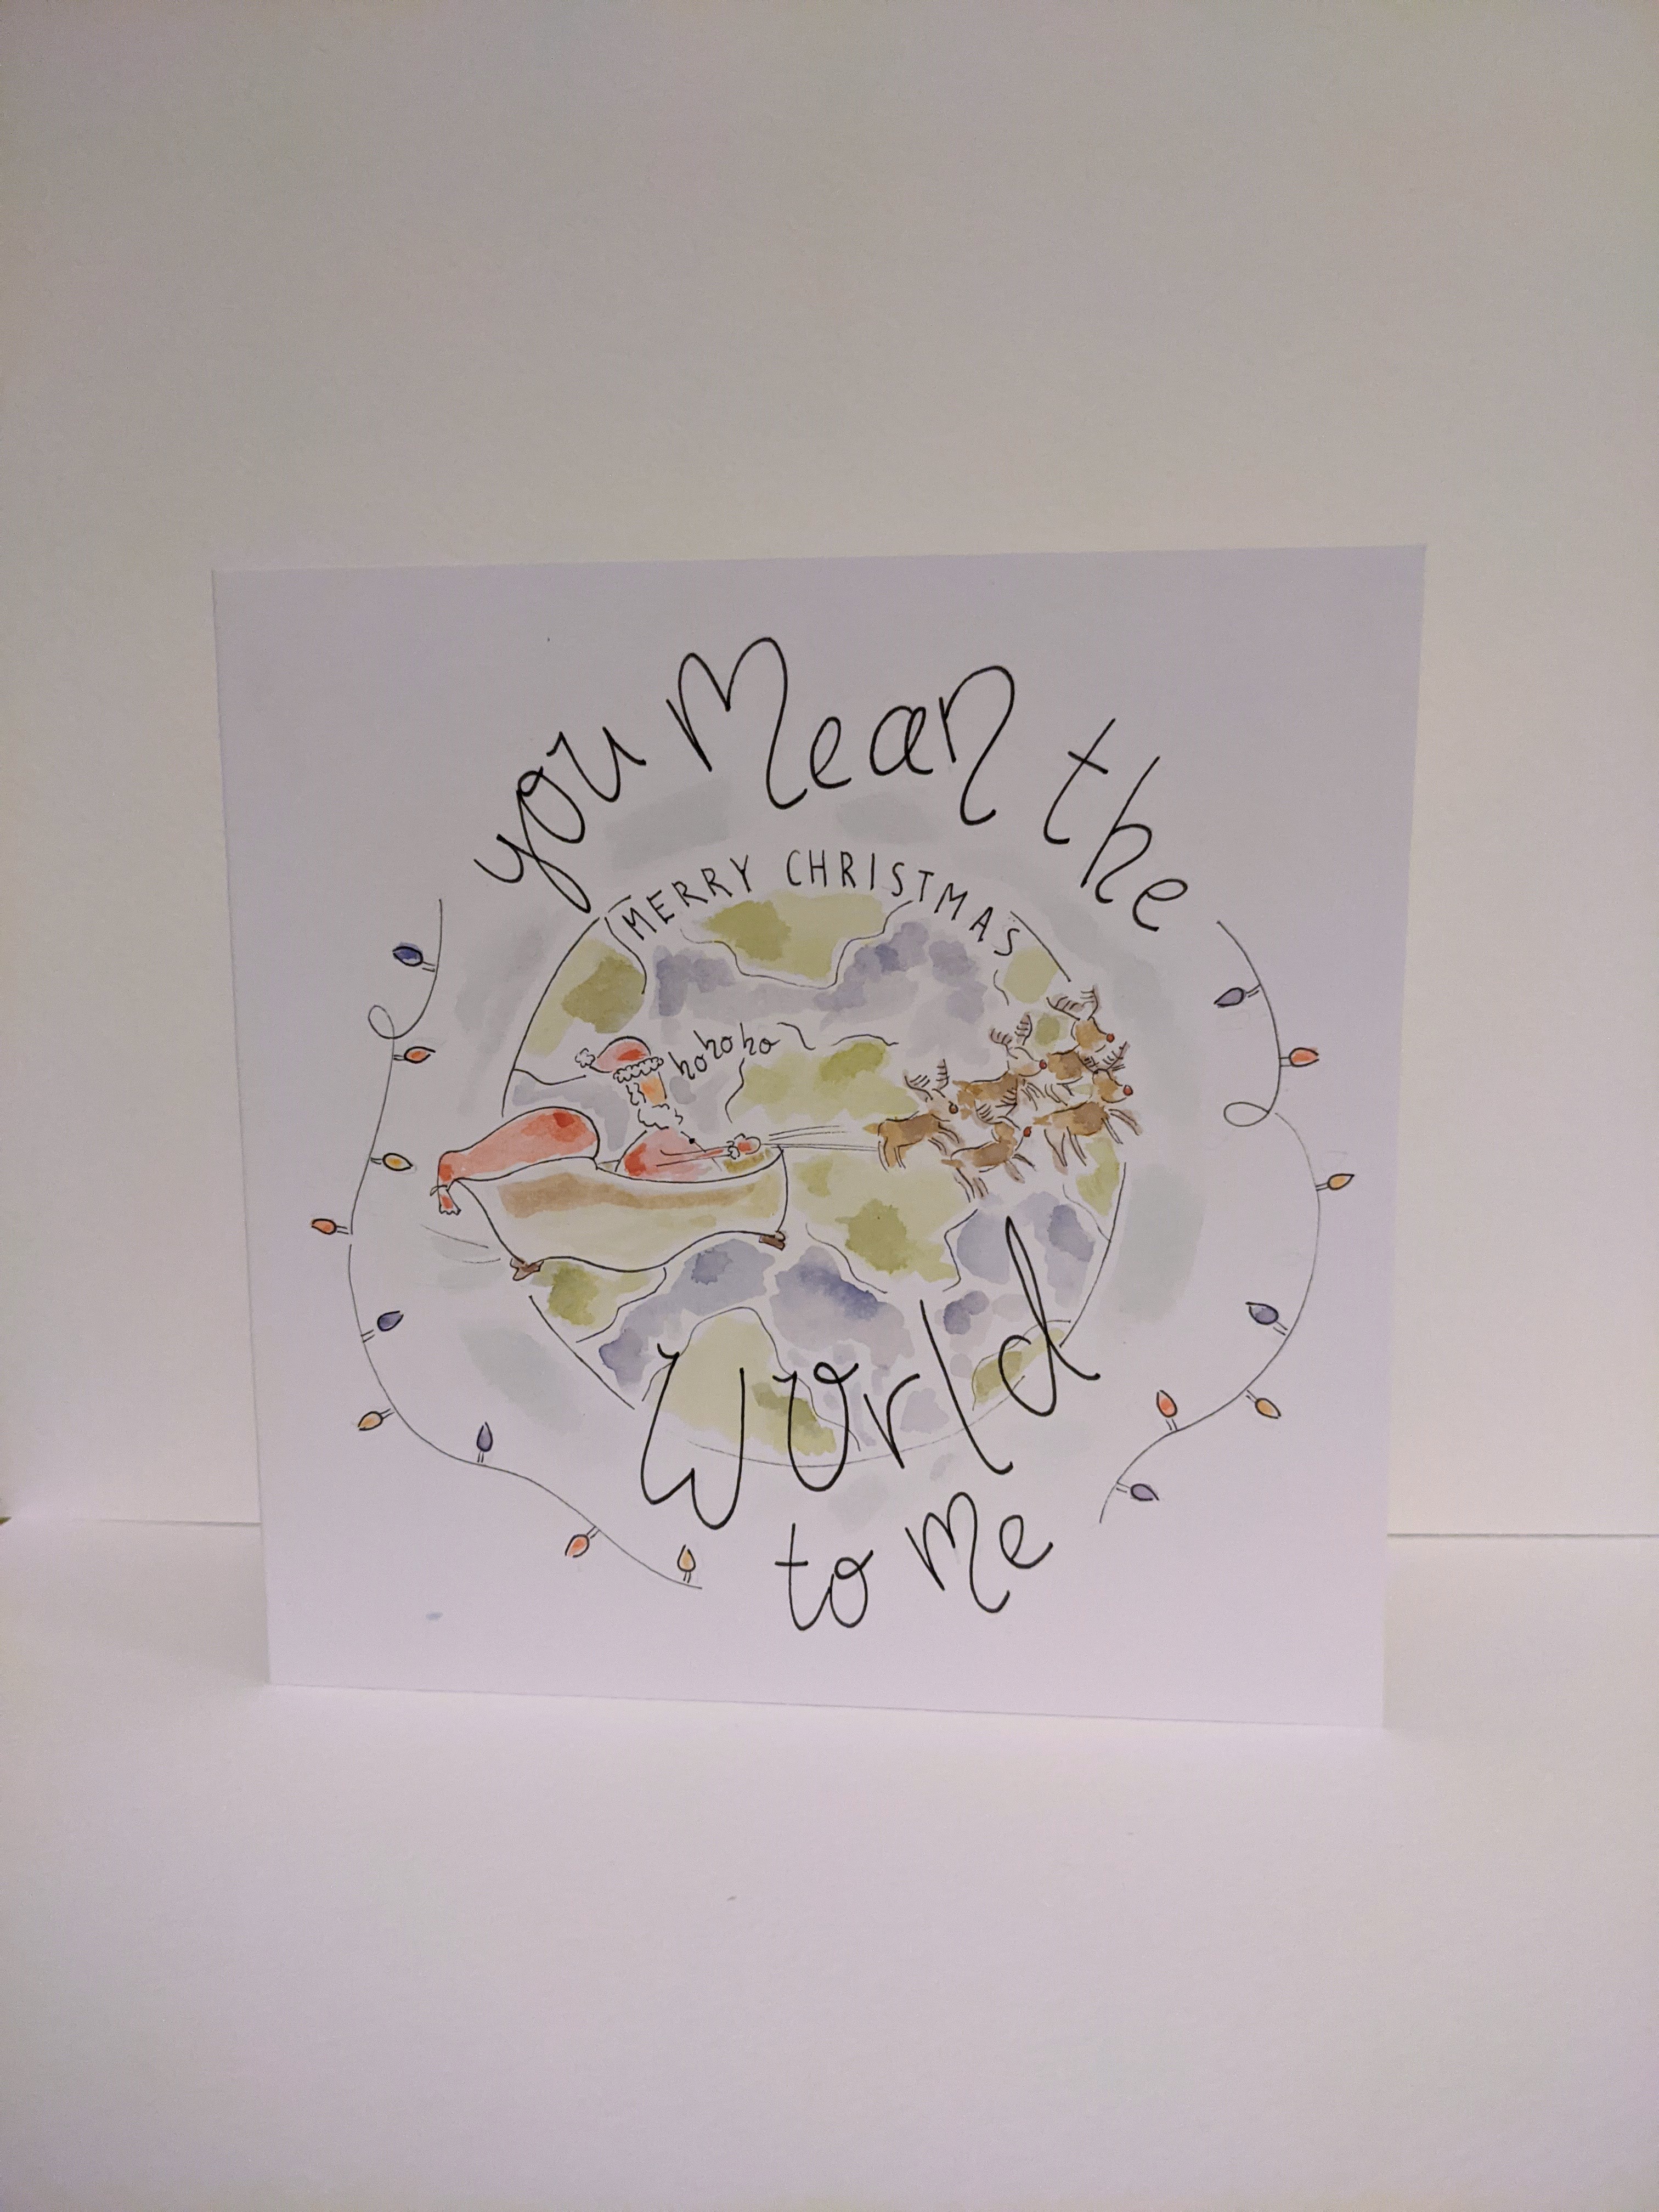 you Mean the
MERRY CHRISTMAS
ho ho ho
World
to Me